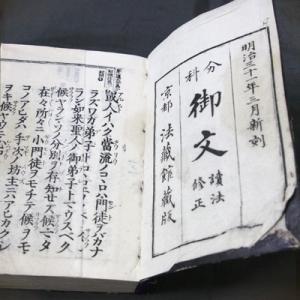 明治三十一年三月新刻
分科 御文 讀法 修正
京都 法藏館藏版
或人イハク當流ノコヽロハ門徒ヲバカナ
ラズワガ弟子トコヽロエヲクベク候
ヤラン如來聖人ノ御弟子トマウスベク
候ヤランソノ分別ヲ存知セズ候マタ
在々所々ニ小門徒ヲモチテ候ヲモ
コノアヒダハ手次ノ坊主ニハアヒカクシ
ヲキ候ヤウニ